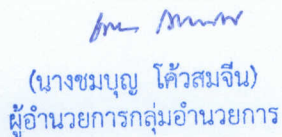 (นางชมบุญ โค้วสมจีน)
ผู้อำนวยการกลุ่มอำนวยการ